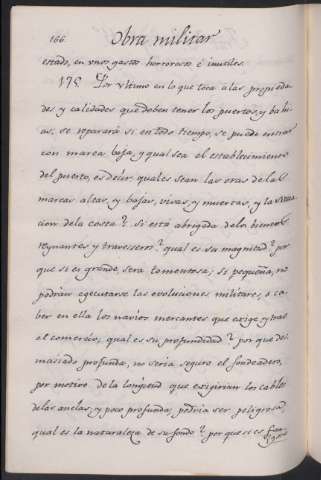 166. Obra militar
estado, en unos gastos horrorosos è inutiles.
175 Por ultimo en lo que toca a las propieda
des y calidades que deben tener los puertos, y bahi
as, se reparará si en todo tiempo, se puede entrar
con marea baja, y qual sea el establecimiento
del puerto, es decir, quales sean las oras de las
mareas altas, y bajas, vivas y muertas, y la situa
cion de la costa? Si está abrigada de los vientos
reynantes y travesseros? qual es su magnitud? por
que si es grande, sera tormentosa; si pequeña, no
podrian egecutarse las evoluciones militares, o ca
ber en ella los navios mercantes que exige, y trae
el comercio; qual es su profundidad? por que de
masiado profunda, no seria seguro el fondeadero,
por motivo de la longitud que exigirian los cables
de las anclas, y poco profunda, podria ser peligrosa,
qual es la naturaleza de su fondo? por que si es